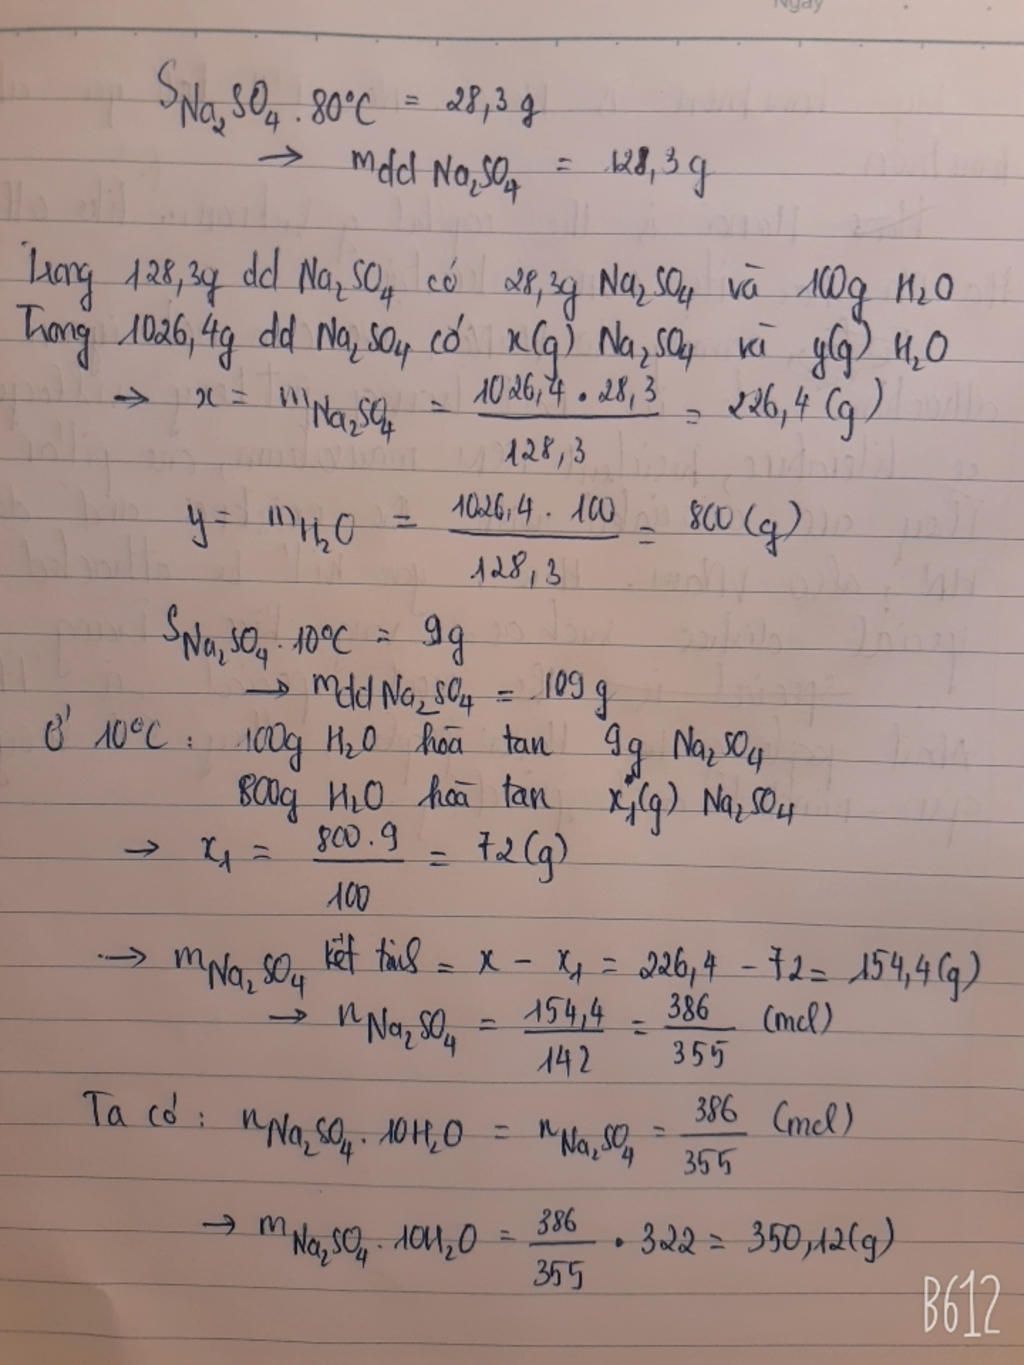 Ngày
S Na₂SO₄ . 80°C = 28,3 g
→ mdd Na₂SO₄ = 128,3 g
Trong 128,3g dd Na₂SO₄ có 28,3g Na₂SO₄ và 100g H₂O
Trong 1026,4g dd Na₂SO₄ có x(g) Na₂SO₄ và y(g) H₂O
→ x = m Na₂SO₄ = 1026,4 . 28,3 / 128,3 = 226,4 (g)
y = m H₂O = 1026,4 . 100 / 128,3 = 800 (g)
S Na₂SO₄ . 10°C = 9g
→ mdd Na₂SO₄ = 109 g
Ở 10°C : 100g H₂O hoà tan 9g Na₂SO₄
800g H₂O hoà tan x₁(g) Na₂SO₄
→ x₁ = 800 . 9 / 100 = 72 (g)
→ m Na₂SO₄ kết tinh = x - x₁ = 226,4 - 72 = 154,4 (g)
→ n Na₂SO₄ = 154,4 / 142 = 386 / 355 (mol)
Ta có : n Na₂SO₄ . 10H₂O = n Na₂SO₄ = 386 / 355 (mol)
→ m Na₂SO₄ . 10H₂O = 386 / 355 . 322 = 350,12 (g)
B612